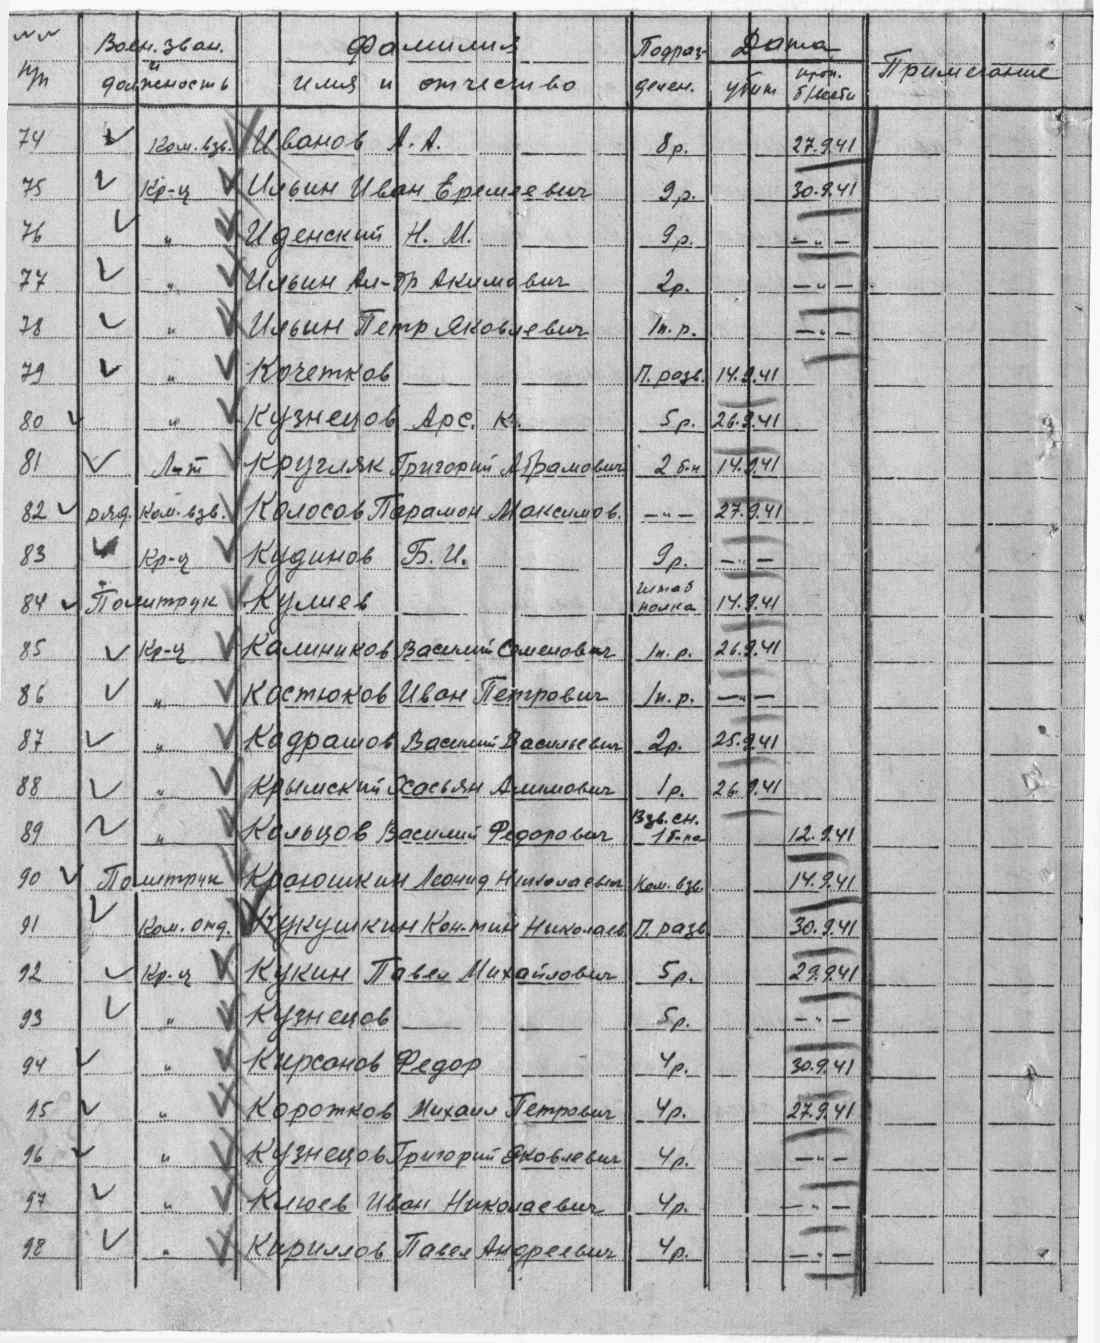 №№ п/п Воен. зван. и должность Фамилия имя и отчество Подразделен. Дата убит проп. б/вести Примечание
74 Ком. взв. Иванов А. А. 8 р. 27.9.41
75 Кр-ц Ильин Иван Еремеевич 9 р. 30.9.41
76 " Иденский Н. М. 9 р. — " —
77 " Ильин Ал-др Акимович 2 р. — " —
78 " Ильин Петр Яковлевич 1 п. р. — " —
79 " Кочетков П. разв. 14.9.41
80 " Кузнецов Арс. К. 5 р. 26.9.41
81 Л-т Кругляк Григорий Абрамович 2 б-н 14.9.41
82 ряд. Ком. взв. Колосов Парамон Максимов. — " — 27.9.41
83 Кр-ц Кудинов Б. И. 9 р. — " —
84 Политрук Кулиев штаб полка 14.9.41
85 Кр-ц Калиников Василий Семенович 1 п. р. 26.9.41
86 " Костюков Иван Петрович 1 п. р. — " —
87 " Кадрашов Василий Васильевич 2 р. 25.9.41
88 " Крымский Хасьян Алимович 1 р. 26.9.41
89 " Кольцов Василий Федорович Взв. сн. 1 б-на 12.9.41
90 Политрук Краюшкин Леонид Николаевич Ком. взв. 14.9.41
91 Ком. отд. Кукушкин Кон-тин Николаев. П. разв. 30.9.41
92 Кр-ц Кукин Павел Михайлович 5 р. 29.9.41
93 " Кузнецов 5 р. — " —
94 " Кирсанов Федор 4 р. 30.9.41
95 " Коротков Михаил Петрович 4 р. 27.9.41
96 " Кузнецов Григорий Яковлевич 4 р. — " —
97 " Клюев Иван Николаевич 4 р. — " —
98 " Кириллов Павел Андреевич 4 р. — " —